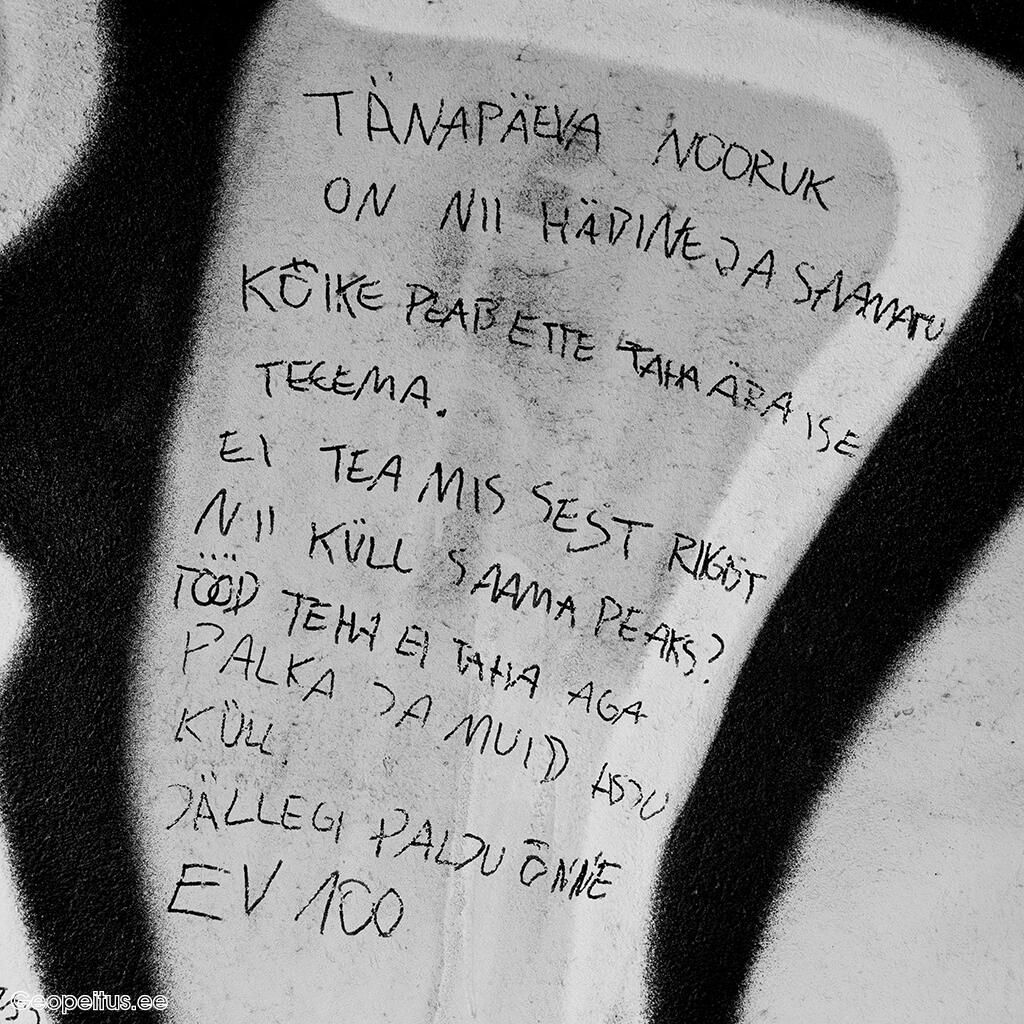 TÄNAPÄEVA NOORUK
ON NII HÄDINE JA SAAMATU
KÕIKE PEAB ETTE TAHA ÄRA ISE
TEGEMA.
EI TEA MIS SEST RIIGIST
NII KÜLL SAAMA PEAKS?
TÖÖD TEHA EI TAHA AGA
PALKA JA MUID ASJU
KÜLL.
JÄLLEGI PALJU ÕNNE
EV 100
Geopeitus.ee